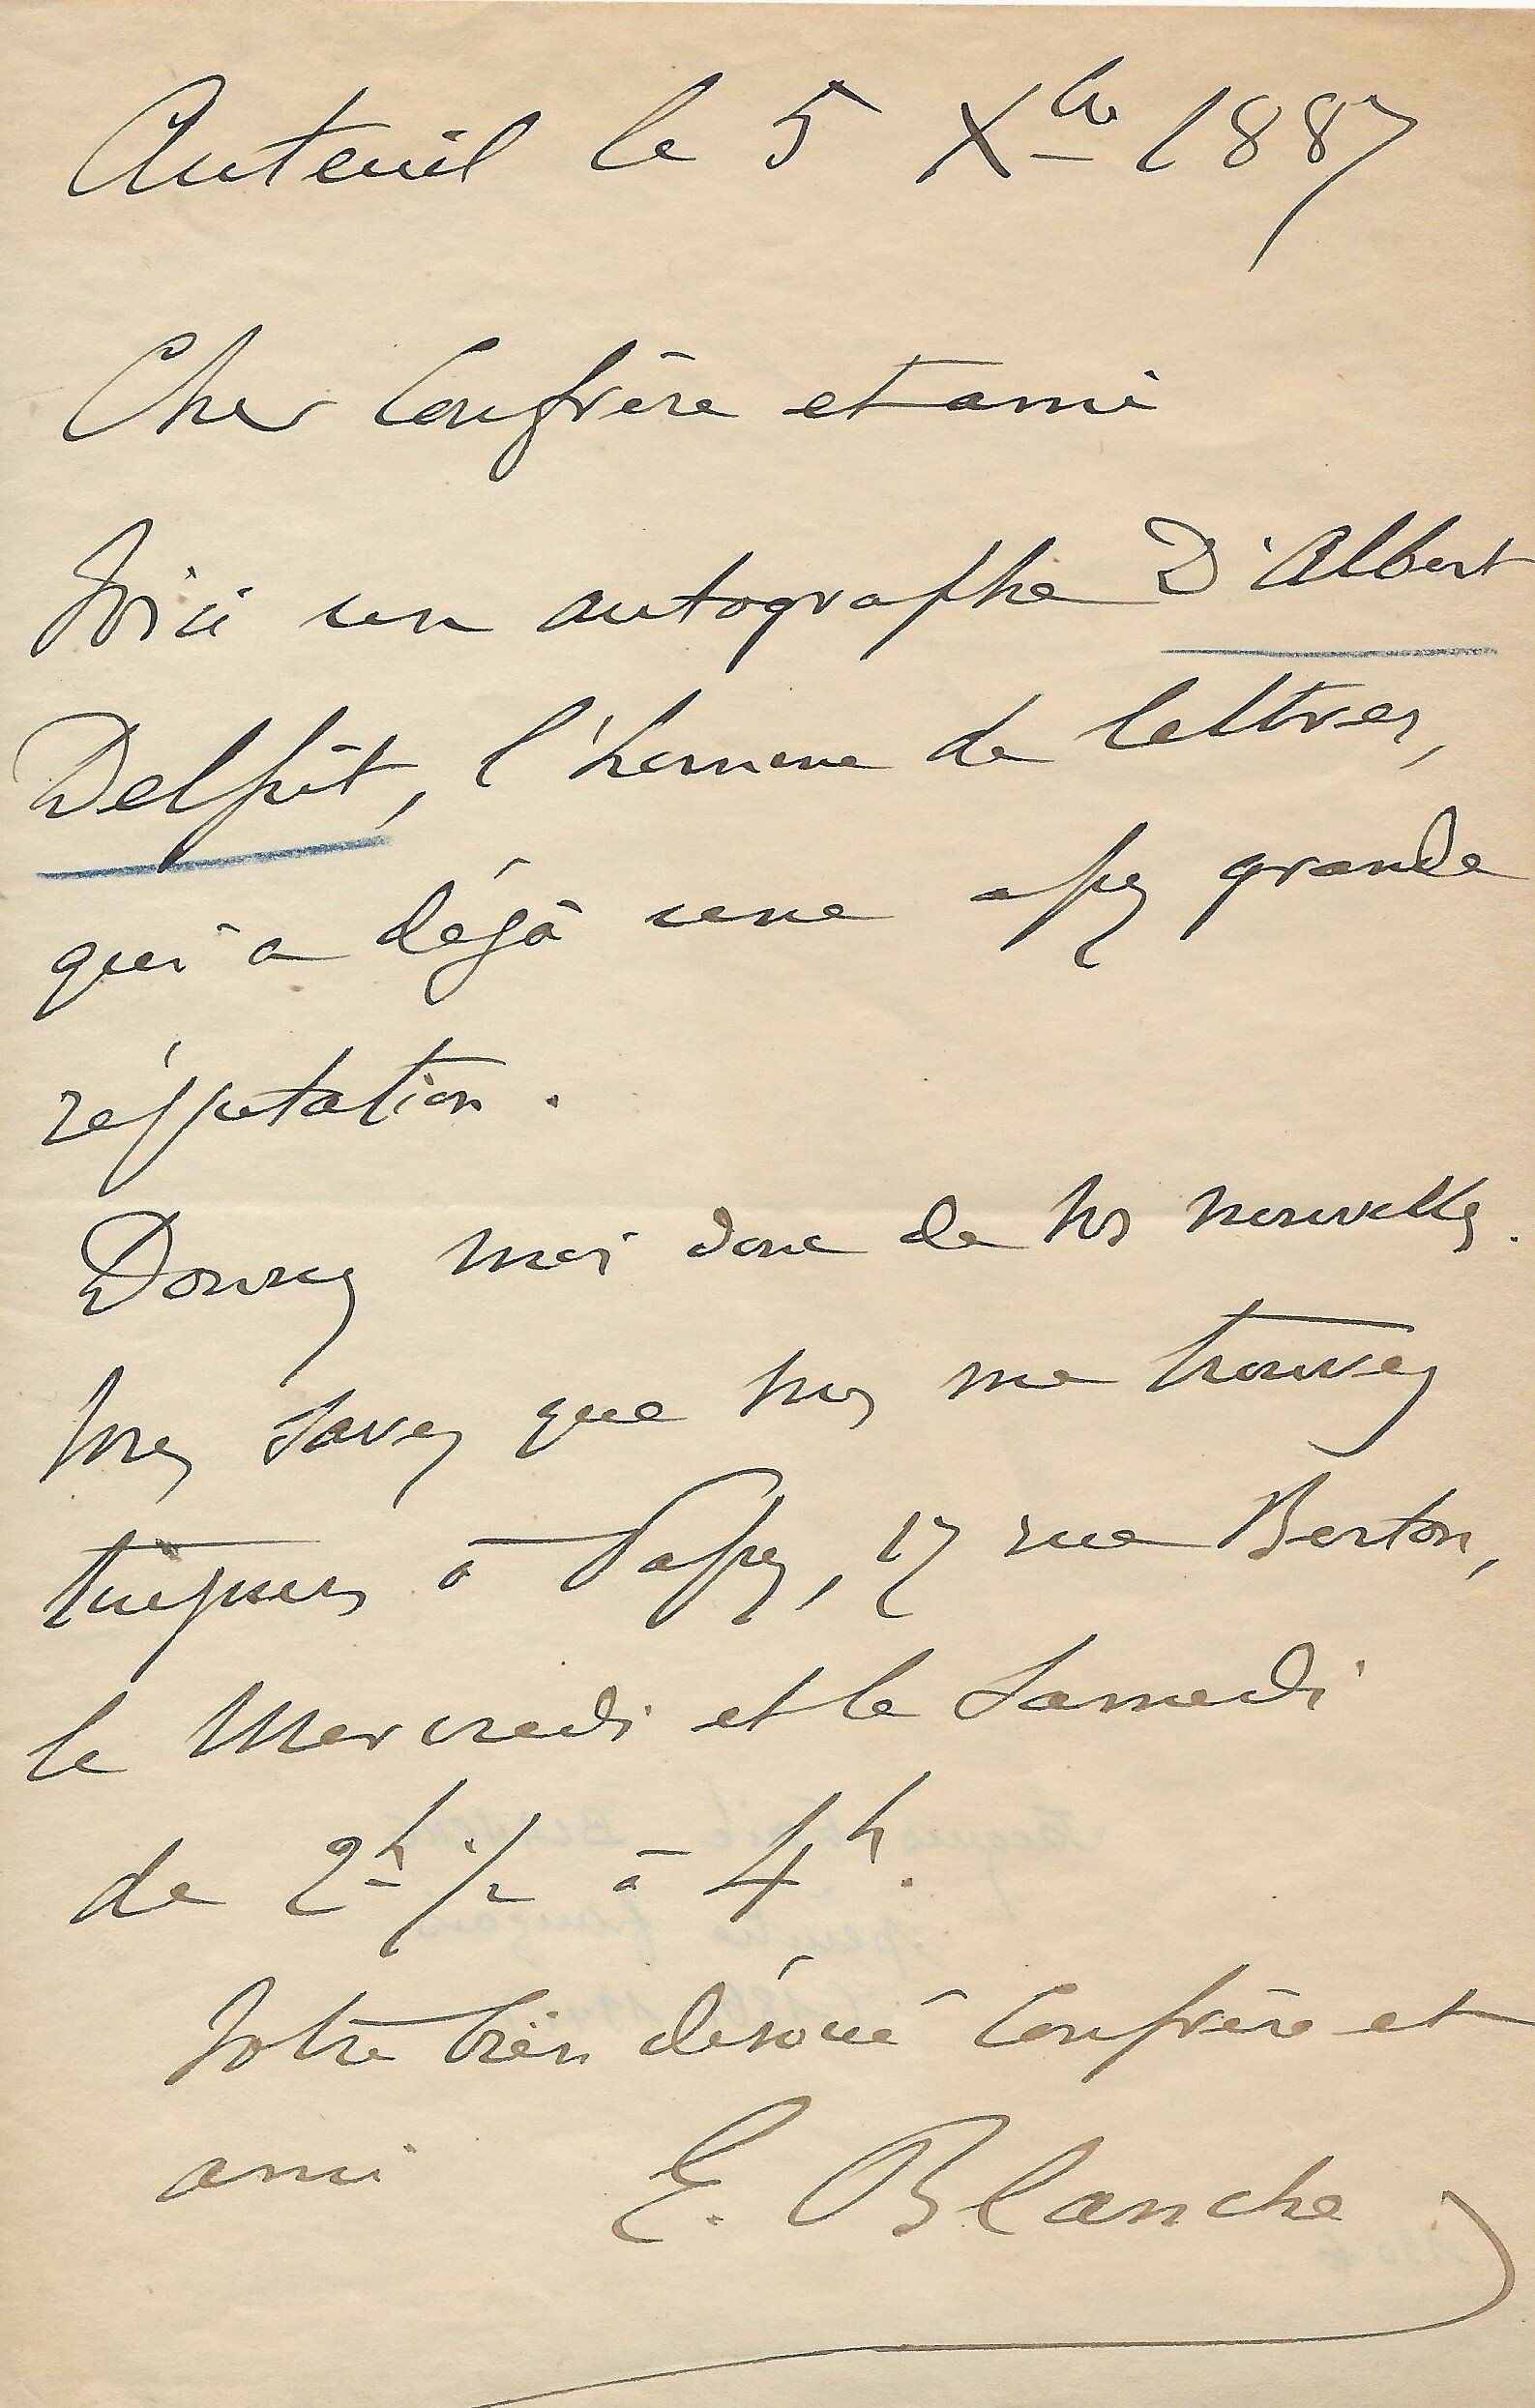 Auteuil le 5 Xbre 1887
Cher Confrère et ami
Voici un autographe D'Albert
Delpit, l'homme de lettres,
qui a déjà une assez grande
réputation.
Donnez moi donc de vos nouvelles.
Vous savez que vous me trouvez
toujours à Passy, 17 rue Berton,
le Mercredi et le Samedi
de 2h 1/2 à 4h.
Votre bien dévoué Confrère et
ami E. Blanche